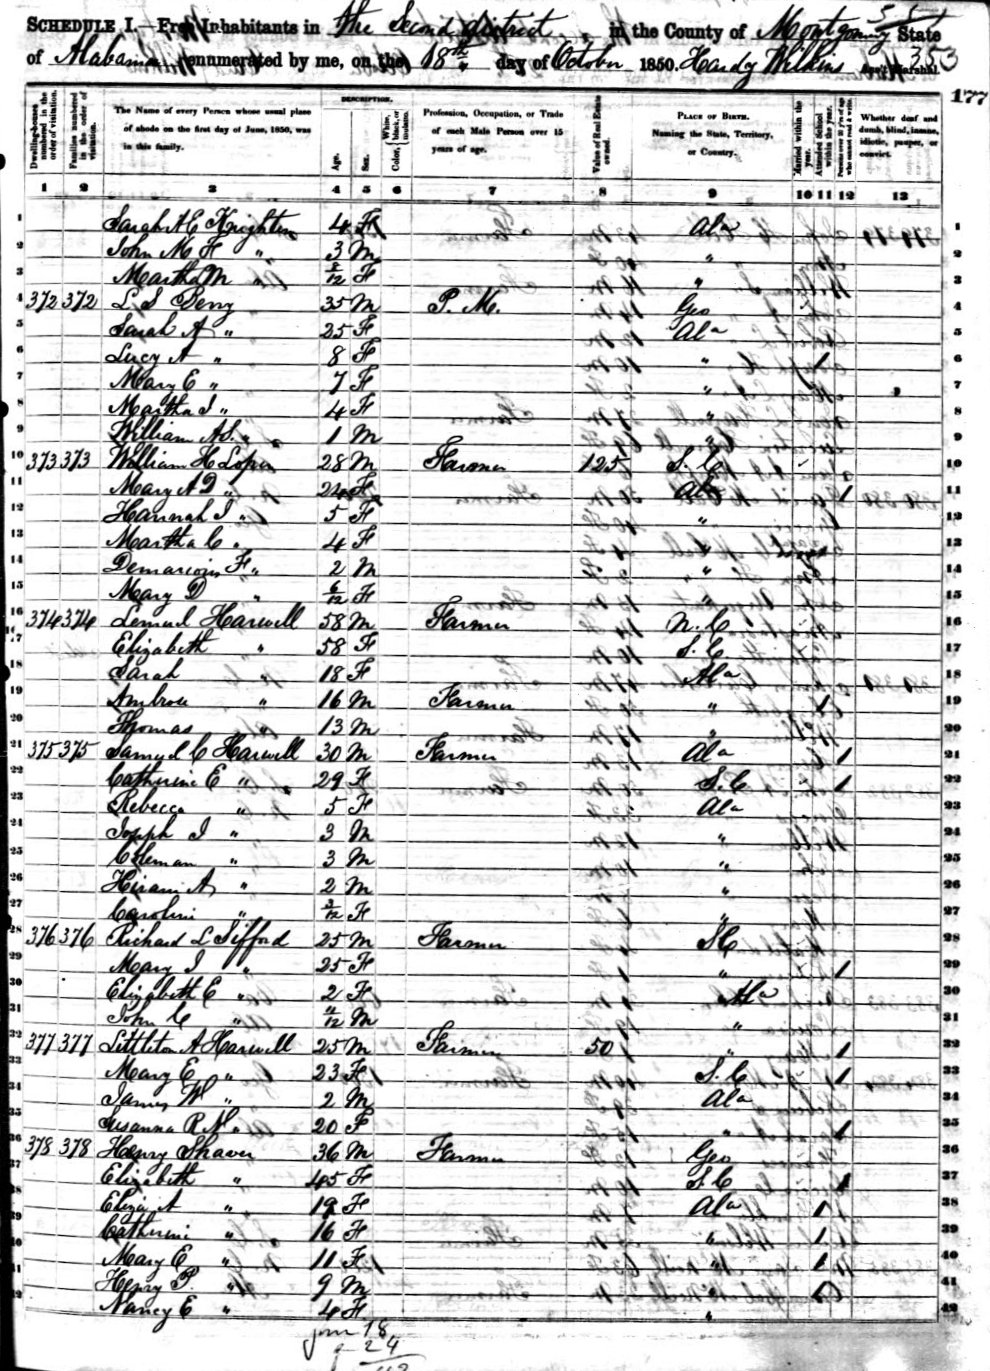 SCHEDULE I.—Free Inhabitants in The Second district in the County of Montgomery State
of Alabama enumerated by me, on the 18th day of October 1850. Hardy Wilkins Ass't Marshal.
353
177
Dwelling-houses numbered in the order of visitation.
Families numbered in the order of visitation.
The Name of every Person whose usual place of abode on the first day of June, 1850, was in this family.
DESCRIPTION.
Age.
Sex.
Color, White, black, or mulatto.
Profession, Occupation, or Trade of each Male Person over 15 years of age.
Value of Real Estate owned.
PLACE OF BIRTH. Naming the State, Territory, or Country.
Married within the year.
Attended School within the year.
Persons over 20 y'rs of age who cannot read & write.
Whether deaf and dumb, blind, insane, idiotic, pauper, or convict.
1 2 3 4 5 6 7 8 9 10 11 12 13
1 Sarah A E Knighten 4 F Ala 1
2 John M F " 3 M " 2
3 Martha M " 2/12 F " 3
4 372 372 L. S. Derry 35 M P. M. Geo 4
5 Sarah A " 25 F Ala 5
6 Lucy A " 8 F " 1 6
7 Mary E " 7 F " 7
8 Martha J " 4 F " 8
9 William A S. " 1 M " 9
10 373 373 William H Loper 28 M Farmer 125 S. C 10
11 Mary A D " 24 F Ala 1 11
12 Hannah J " 5 F " 12
13 Martha C " 4 F " 13
14 F " 2 M " 14
15 Mary D " 6/12 F " 15
16 374 374 Lemuel Harwell 58 M Farmer N. C 16
17 Elizabeth " 58 F S. C 17
18 Sarah 18 F Ala 18
19 Ambrose " 16 M Farmer " 1 19
20 Thomas " 13 M " 20
21 375 375 Samuel C Harwell 30 M Farmer Ala 1 21
22 Catherine E " 29 F S. C 1 22
23 Rebecca " 5 F Ala 23
24 Joseph J " 3 M " 24
25 Coleman " 3 M " 25
26 Hiram A " 2 M " 26
27 Caroline " 3/12 F " 27
28 376 376 Richard L Sifford 25 M Farmer S C 28
29 Mary J " 25 F " 1 29
30 Elizabeth E " 2 F Ala 30
31 John C " 11/12 M " 31
32 377 377 Littleton A Harwell 25 M Farmer 50 " 1 32
33 Mary E " 23 F S. C 1 33
34 James W " 2 M Ala 34
35 Susanna R M " 20 F " 1 35
36 378 378 Henry Shaver 36 M Farmer Geo 36
37 Elizabeth " 45 F S. C 1 37
38 Eliza A " 19 F Ala 1 38
39 Catherine " 16 F " 1 39
40 Mary E " 11 F " 1 40
41 Henry P " 9 M 41
42 Nancy E " 4 F " 42
18
24